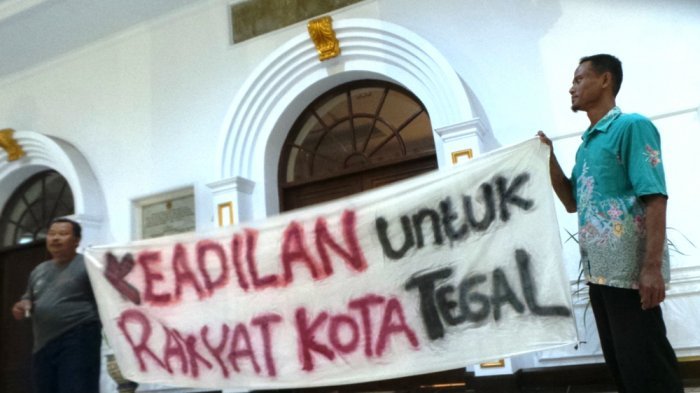 KEADILAN untuK
RAKYAT KOTA TEGAL